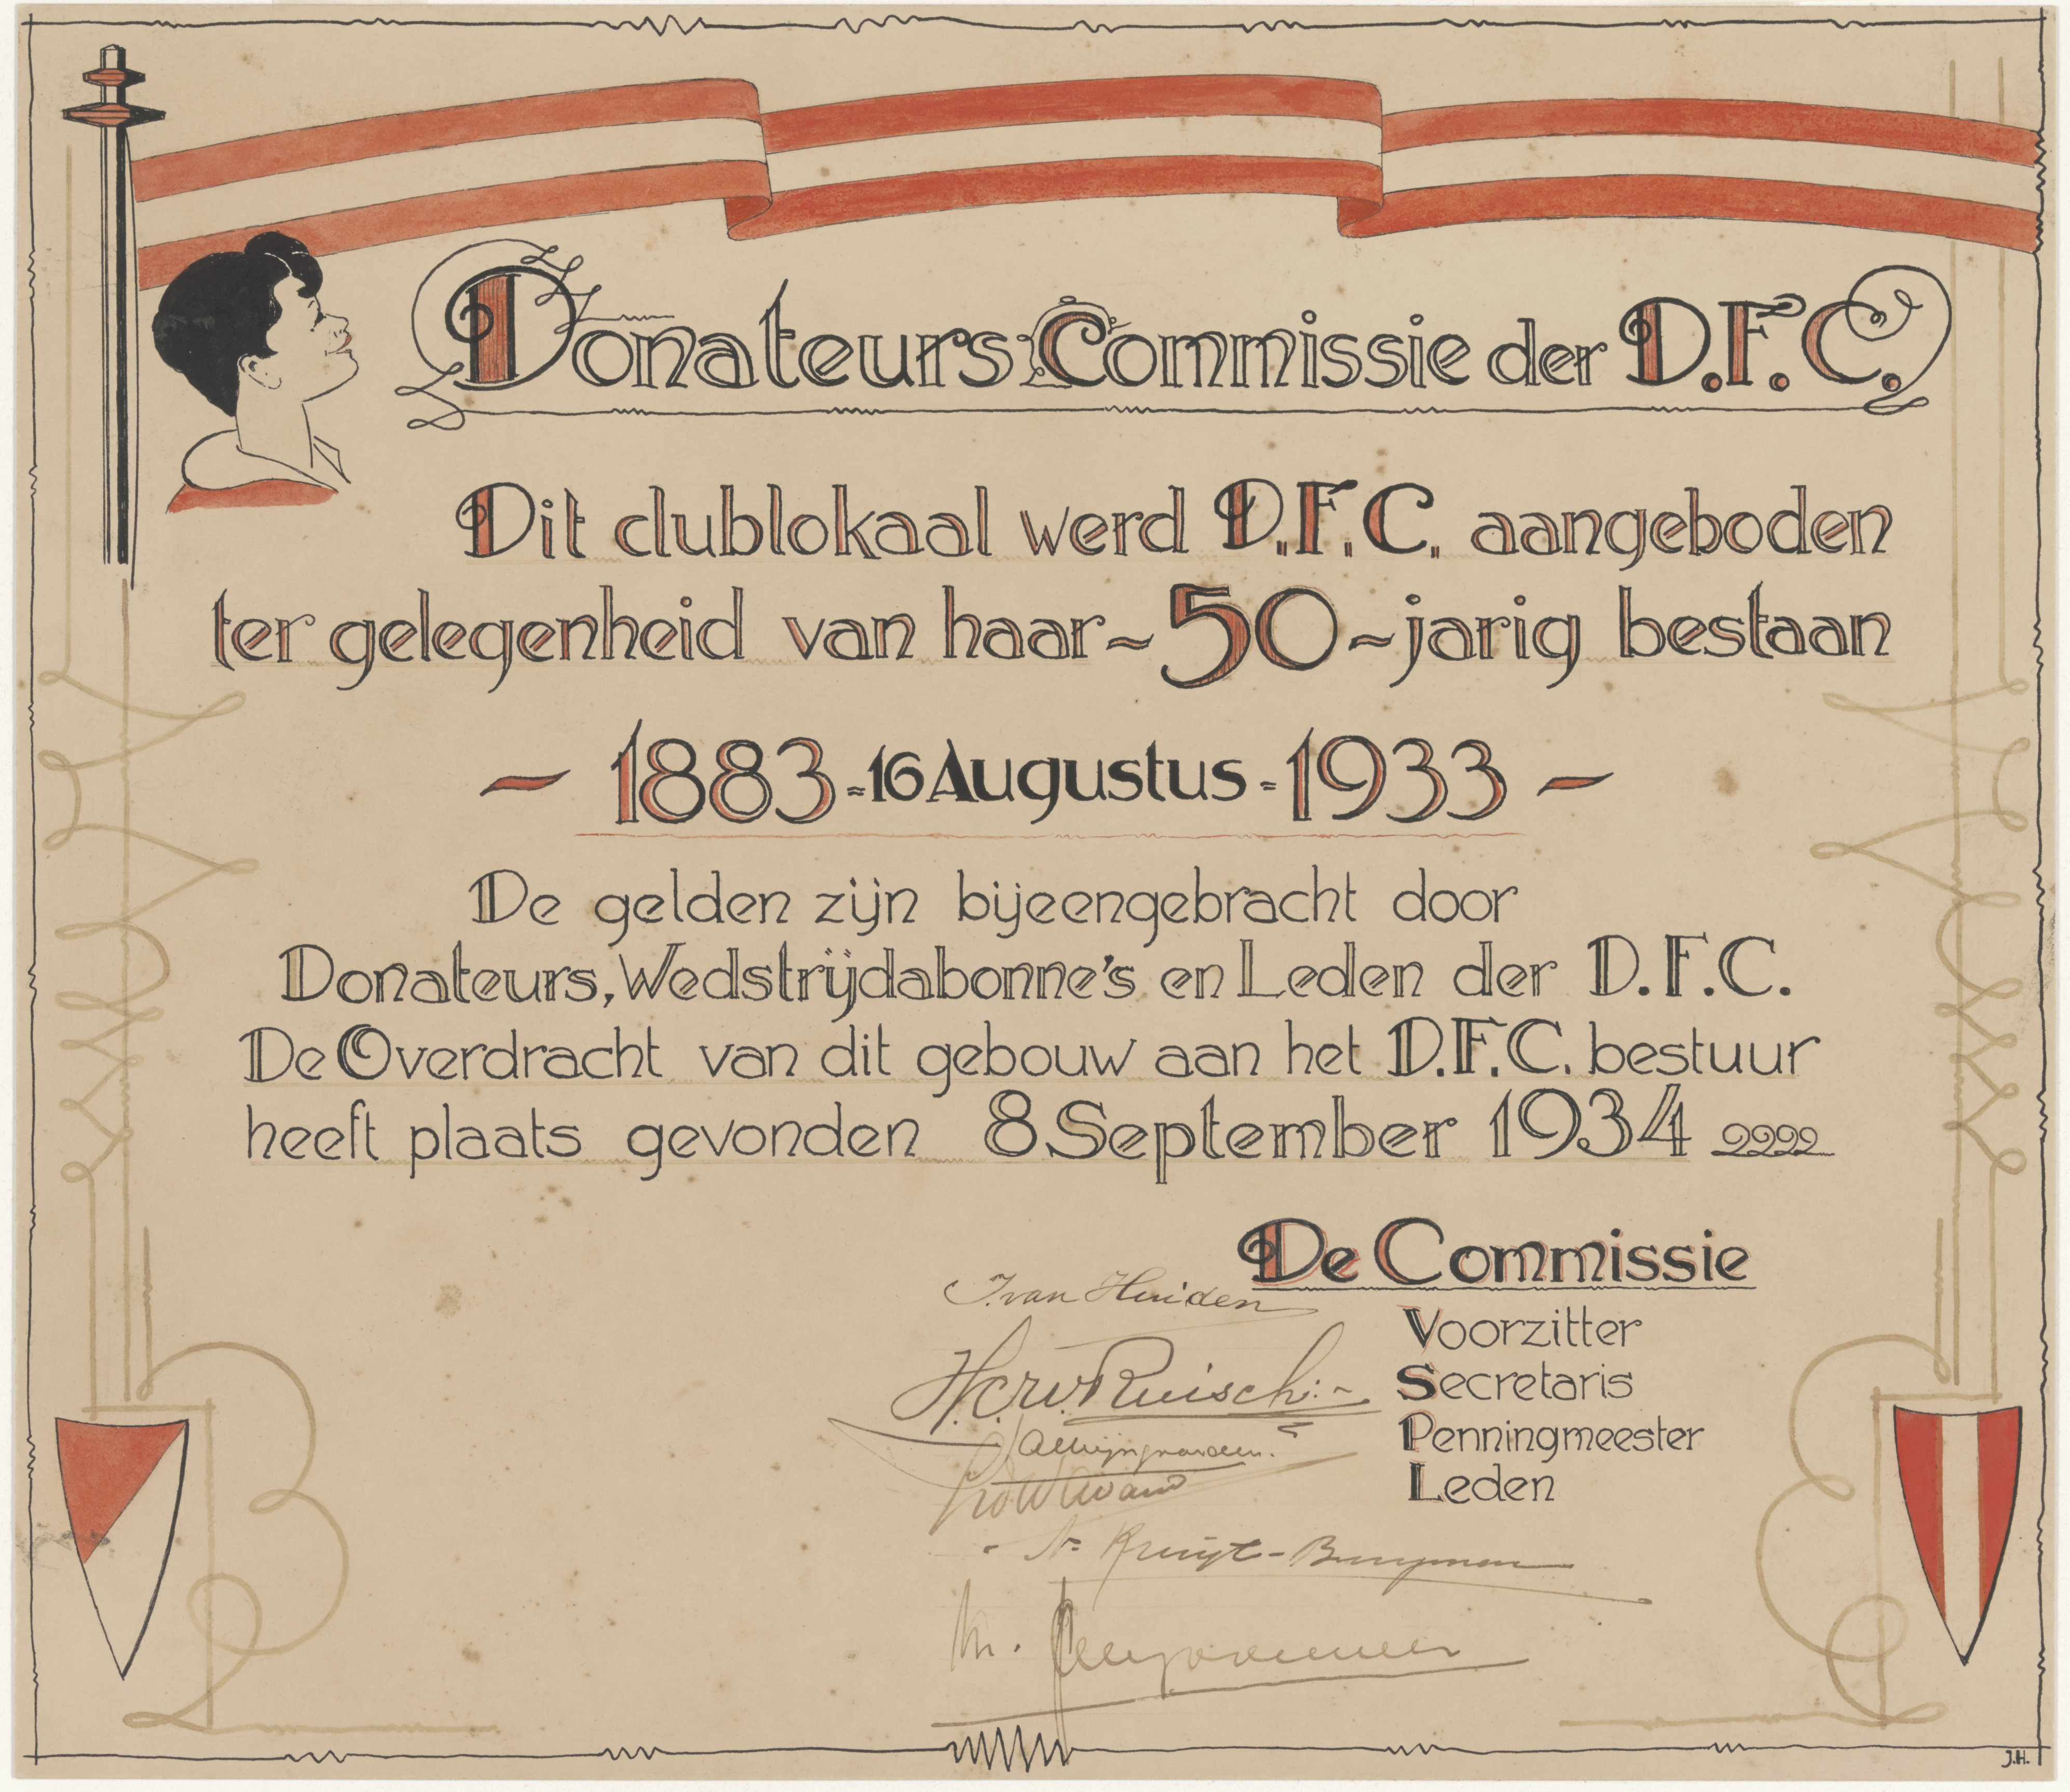 Donateurs Commissie der D.F.C.
Dit clublokaal werd D.F.C. aangeboden
ter gelegenheid van haar ~ 50 ~ jarig bestaan
~ 1883 = 16 Augustus = 1933 ~
De gelden zijn bijeengebracht door
Donateurs, Wedstrijdabonne's en Leden der D.F.C.
De Overdracht van dit gebouw aan het D.F.C. bestuur
heeft plaats gevonden 8 September 1934
De Commissie
J. van Huiden
Voorzitter
Ruisch
Secretaris
Penningmeester
Leden
J.H.